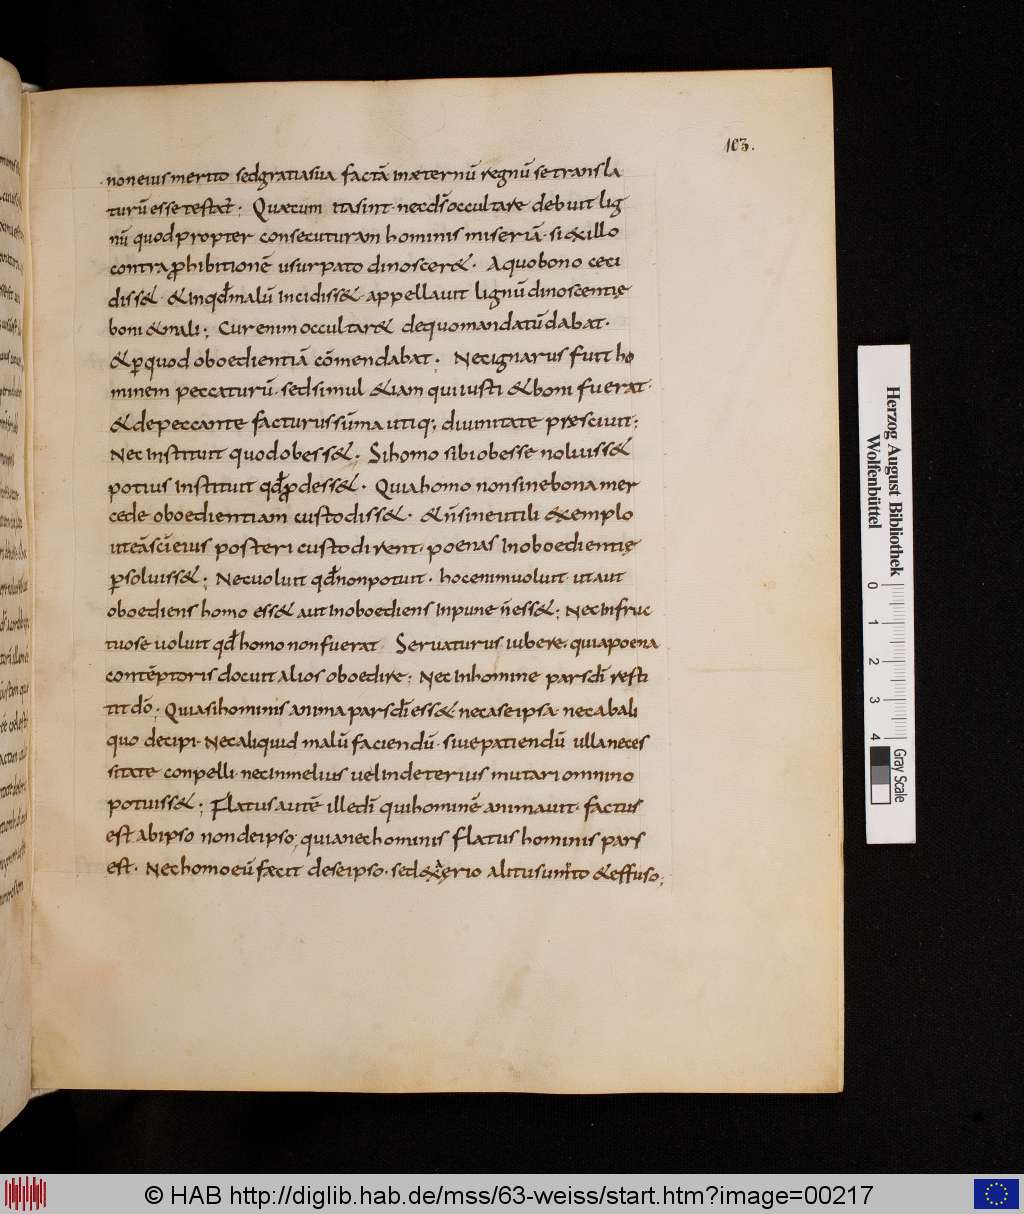 103.
non eius merito sed gratia sua factā in æternū regnū se transla
turū esse testat̄; Quæ cum ita sint · nec d̄s occultare debuit lig
nū quod propter consecuturam hominis miseriā · si ex illo
contra ꝓhibitionē usurpato dinoscer& · A quo bono ceci
diss& · & in qd̄ malū incidiss& · appellauit lignū dinoscentię
boni & mali; Cur enim occultar& de quo mandatū dabat ·
& ꝑ quod oboedientiā cōmendabat; Nec ignarus fuit ho
minem peccaturū · sed simul &iam qui iusti & boni fuerat ·
& de peccante facturus sūma utiq; diuinitate presciuit;
Nec instituit quod obess&; Si homo sibi obesse noluiss&
potius instituit qd̄ ꝓdess& · Quia homo non sine bona mer
cede oboedientiam custodiss& · & n̄ sine utili exemplo
ut eā sc̄i eius posteri custodirent · poenas inoboedientię
ꝑsoluiss&; Nec uoluit qd̄ non potuit · hoc enim uoluit · ut aut
oboediens homo ess& aut inoboediens inpune n̄ ess&; Nec infruc
tuose uoluit qd̄ homo non fuerat Seruaturus iubere · quia poena
contēptoris docuit alios oboedire; Nec in homine pars dī resti
tit dō; Quia si hominis anima pars dī ess& nec a se ipsa · nec ab ali
quo decipi · Nec aliquid malū faciendū · siue patiendū ulla neces
sitate conpelli · nec in melius uel in deterius mutari omnino
potuiss&; Flatus autē ille dī qui hominē animauit · factus
est ab ipso non de ipso; quia nec hominis flatus hominis pars
est · Nec homo eū fæcit de se ipso · sed ex aęrio alitu sumto & effuso;
Herzog August Bibliothek
Wolfenbüttel
0 1 2 3 4
Gray Scale
© HAB http://diglib.hab.de/mss/63-weiss/start.htm?image=00217